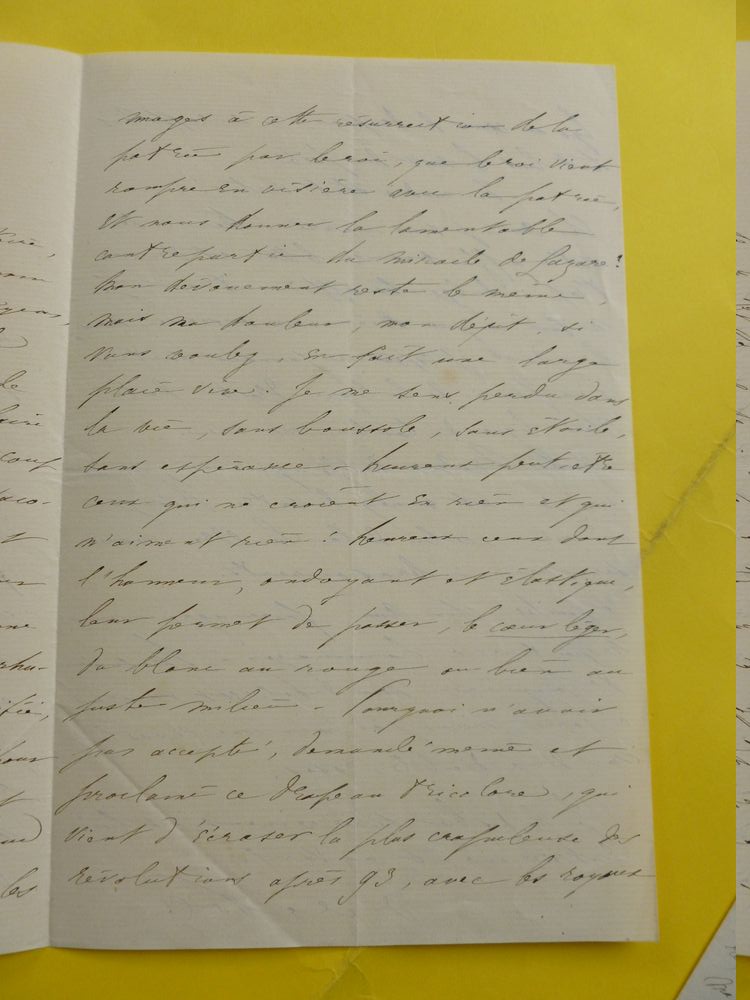 mages à cette résurrection de la
patrie par le roi, que le roi vient
rompre en visière avec la patrie,
et nous donner la lamentable
contrepartie du miracle de Lazare!
Mon dévouement reste le même,
mais ma douleur, mon dépit, si
vous voulez, en fait une large
plaie vive. Je me sens perdu dans
la vie, sans boussole, sans étoile,
sans espérance - heureux peut-être
ceux qui ne croient en rien et qui
n'aiment rien! heureux ceux dont
l'honneur, ondoyant et élastique,
leur permet de passer, le cœur léger,
du blanc au rouge ou bien au
juste milieu - Pourquoi n'avoir
pas accepté, demandé même et
proclamé ce drapeau tricolore, qui
vient d'écraser la plus crapuleuse des
révolutions après 93, avec les